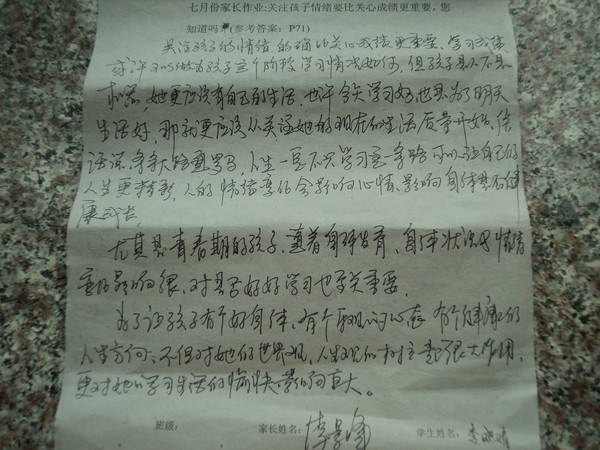 七月份家长作业:关注孩子情绪要比关心成绩更重要,您
知道吗?(参考答案:P71)
关注孩子的情绪,的确比关心成绩更重要。学习成绩
或许可以做为孩子这个阶段学习情况如何,但孩子是人不是
机器,她更应该有自己的生活,也许今天学习好,也是为了明天
生活好,那就更应该从关注她的现在的生活质量开始。俗
话说,条条大路通罗马,人生一辈不只学习这一条路可以让自己的
人生更精彩,人的情绪变化会影响心情,影响身体是否健
康成长,
尤其是青春期的孩子,随着身体发育,自体状况与情绪
影响很,对是否好好学习也关重要。
为了让孩子有个好身体,有个乐观的心态,有个健康的
人生方向,不但对她们的世界观,人生观的树立起很大作用,
更对她的学习生活的愉快影响巨大。
班级: 家长姓名: 李景峰 学生姓名: 李晓晴